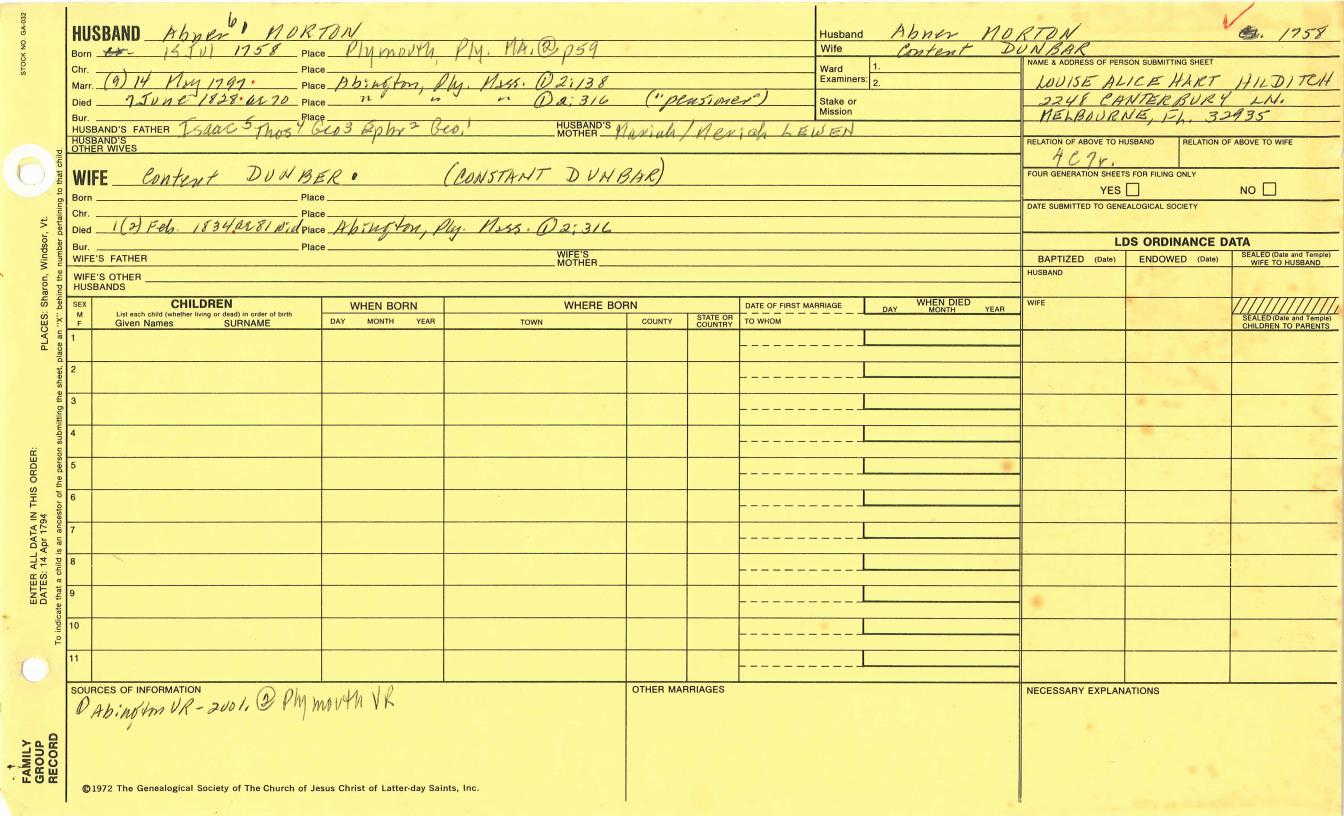 STOCK NO. GA-032
HUSBAND Abner 6 MORTON
Born 15 Jul 1758 Place Plymouth, Ply. MA. ② p59
Chr. Place
Marr. (9) 14 May 1797. Place Abington, Ply. Mass. ① 2:138
Died 7 June 1828. ae 70 Place " " " ① 2:316 ("pensioner")
Bur. Place
HUSBAND'S FATHER Isaac 5 Thos 4 Geo 3 Ephr 2 Geo. 1 HUSBAND'S MOTHER Mariah/Meriah LEWEN
HUSBAND'S OTHER WIVES
WIFE Content DUNBER. (CONSTANT DUNBAR)
Born Place
Chr. Place
Died 1(2) Feb. 1834 ae 81 wid Place Abington, Ply. Mass. ① 2:316
Bur. Place
WIFE'S FATHER WIFE'S MOTHER
WIFE'S OTHER HUSBANDS
Husband Abner MORTON 1758
Wife Content DUNBAR
Ward Examiners: 1. 2.
Stake or Mission
NAME & ADDRESS OF PERSON SUBMITTING SHEET
LOUISE ALICE HART HILDITCH
2248 CANTERBURY LN.
MELBOURNE, FL. 32935
RELATION OF ABOVE TO HUSBAND RELATION OF ABOVE TO WIFE
4C7r.
FOUR GENERATION SHEETS FOR FILING ONLY
YES NO
DATE SUBMITTED TO GENEALOGICAL SOCIETY
LDS ORDINANCE DATA
BAPTIZED (Date) ENDOWED (Date) SEALED (Date and Temple) WIFE TO HUSBAND
HUSBAND
WIFE
SEALED (Date and Temple) CHILDREN TO PARENTS
SEX M F
CHILDREN
List each child (whether living or dead) in order of birth
Given Names SURNAME
WHEN BORN
DAY MONTH YEAR
WHERE BORN
TOWN COUNTY STATE OR COUNTRY
DATE OF FIRST MARRIAGE
TO WHOM
WHEN DIED
DAY MONTH YEAR
1
2
3
4
5
6
7
8
9
10
11
SOURCES OF INFORMATION
① Abington VR - 2 vol. ② Plymouth VR
OTHER MARRIAGES
NECESSARY EXPLANATIONS
©1972 The Genealogical Society of The Church of Jesus Christ of Latter-day Saints, Inc.
PLACES: Sharon, Windsor, Vt.
ENTER ALL DATA IN THIS ORDER:
DATES: 14 Apr 1794
To indicate that a child is an ancestor of the person submitting the sheet, place an "X" behind the number pertaining to that child.
FAMILY GROUP RECORD